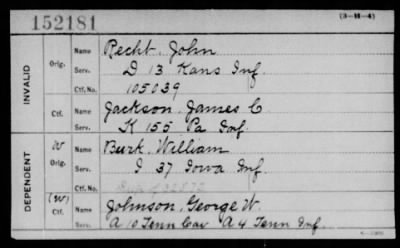 152181
(3-M-4)
INVALID
Orig.
Name Recht, John
Serv. D 13 Kans Inf.
Ctf. No. 105039
Ctf.
Name Jackson, James C
Serv. K 155 Pa Inf.
DEPENDENT
W
Orig.
Name Burk, William
Serv. I 37 Iowa Inf.
Ctf. No.
(W)
Ctf.
Name Johnson, George W.
Serv. A 10 Tenn Cav A 4 Tenn Inf.